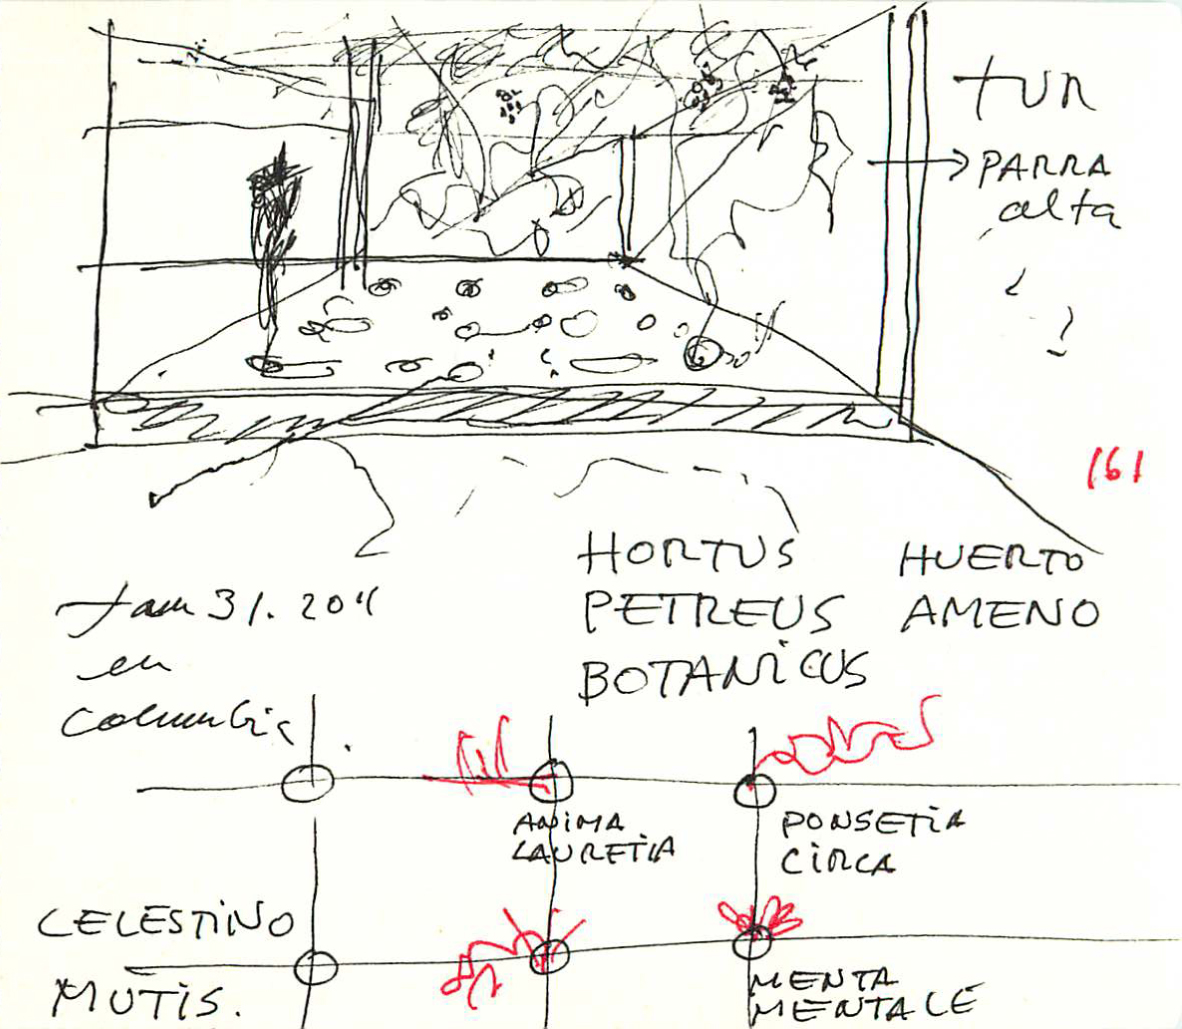 tUR
PARRA
alta
161
HORTUS HUERTO
PETREUS AMENO
BOTANiCUS
31. 2011
en
Columbia
ANiMA
LAURETiA
PONSETiA
CiRCA
CELESTiNO
MUTiS.
MENTA
MENTALE